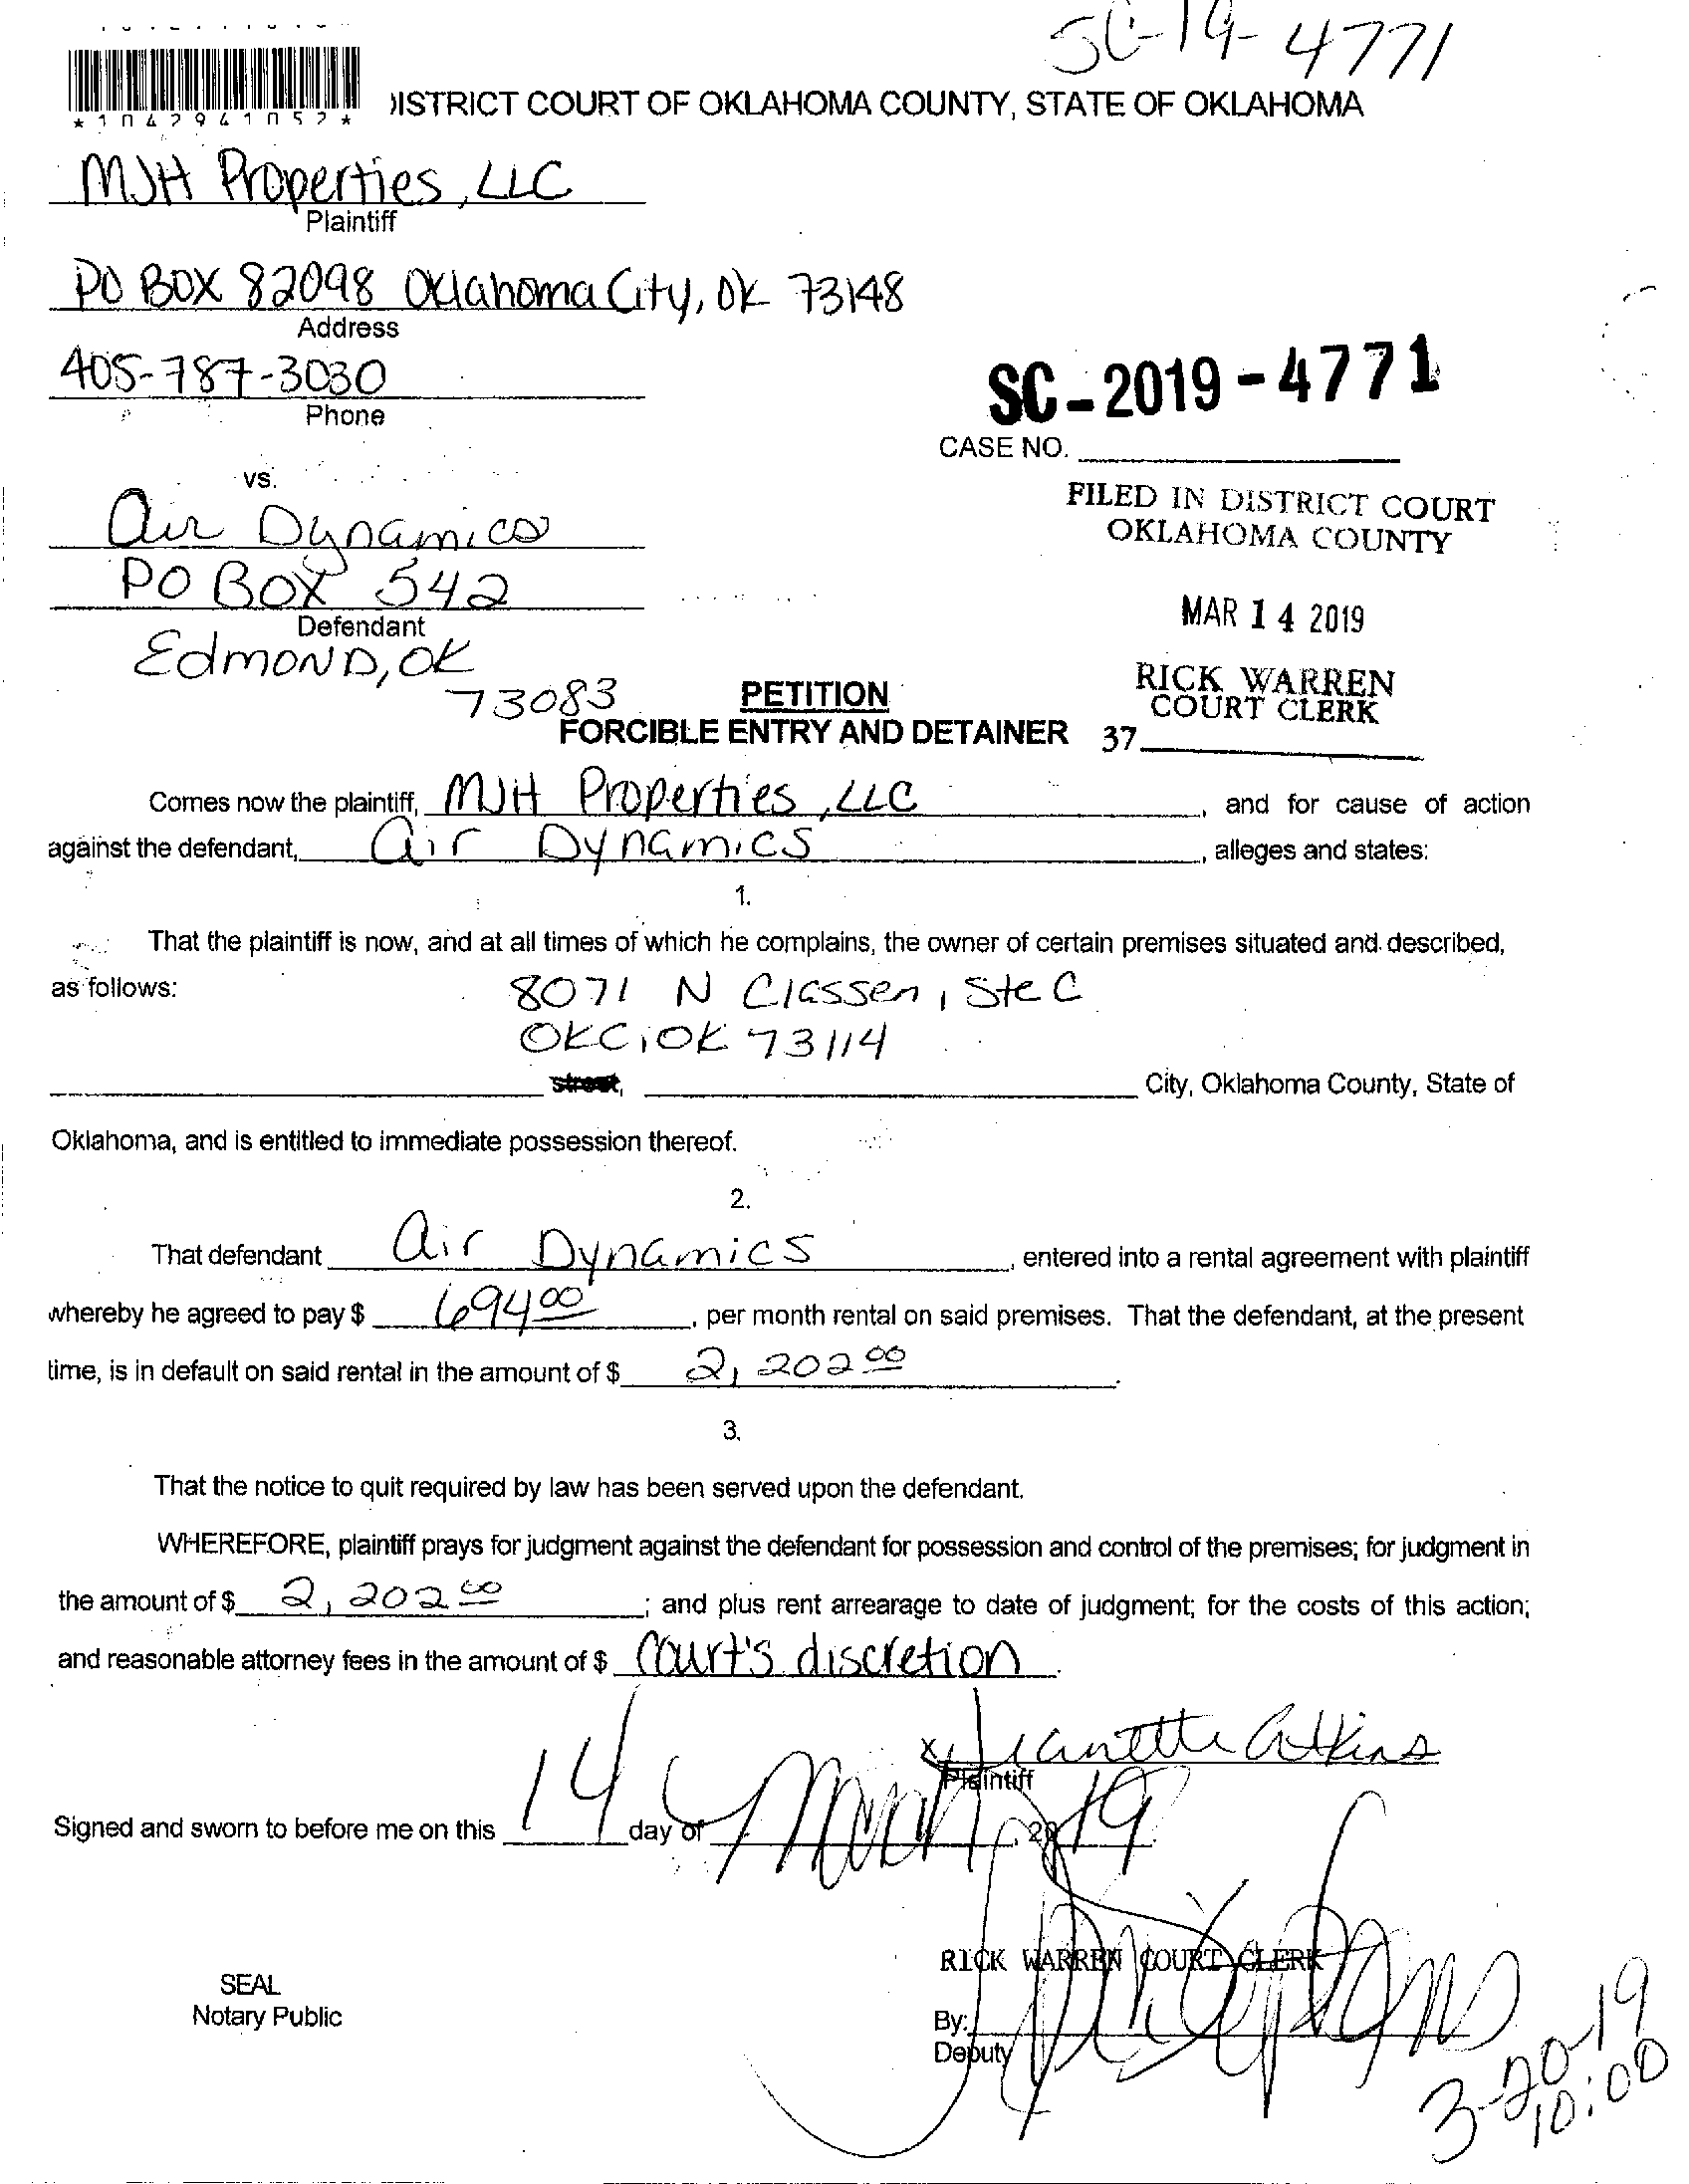 SC-19-4771
*1042941052*
DISTRICT COURT OF OKLAHOMA COUNTY, STATE OF OKLAHOMA
MJH Properties, LLC
Plaintiff
PO BOX 82098 Oklahoma City, OK 73148
Address
405-787-3030
Phone
SC-2019-4771
CASE NO.
vs.
FILED IN DISTRICT COURT
OKLAHOMA COUNTY
Air Dynamics
PO BOX 542
Defendant
MAR 14 2019
Edmond, OK
73083
RICK WARREN
COURT CLERK
PETITION
FORCIBLE ENTRY AND DETAINER 37
Comes now the plaintiff, MJH Properties, LLC, and for cause of action
against the defendant, Air Dynamics, alleges and states:
1.
That the plaintiff is now, and at all times of which he complains, the owner of certain premises situated and described,
as follows: 8071 N Classen, Ste C
OKC, OK 73114
street, City, Oklahoma County, State of
Oklahoma, and is entitled to immediate possession thereof.
2.
That defendant Air Dynamics, entered into a rental agreement with plaintiff
whereby he agreed to pay $ 694.00, per month rental on said premises. That the defendant, at the present
time, is in default on said rental in the amount of $ 2,202.00.
3.
That the notice to quit required by law has been served upon the defendant.
WHEREFORE, plaintiff prays for judgment against the defendant for possession and control of the premises; for judgment in
the amount of $ 2,202.00; and plus rent arrearage to date of judgment; for the costs of this action;
and reasonable attorney fees in the amount of $ Court's discretion.
x Jeanette Atkins
Plaintiff
Signed and sworn to before me on this 14 day of March, 2019
RICK WARREN COURT CLERK
SEAL
Notary Public
By:
Deputy
3-20-19
10:00